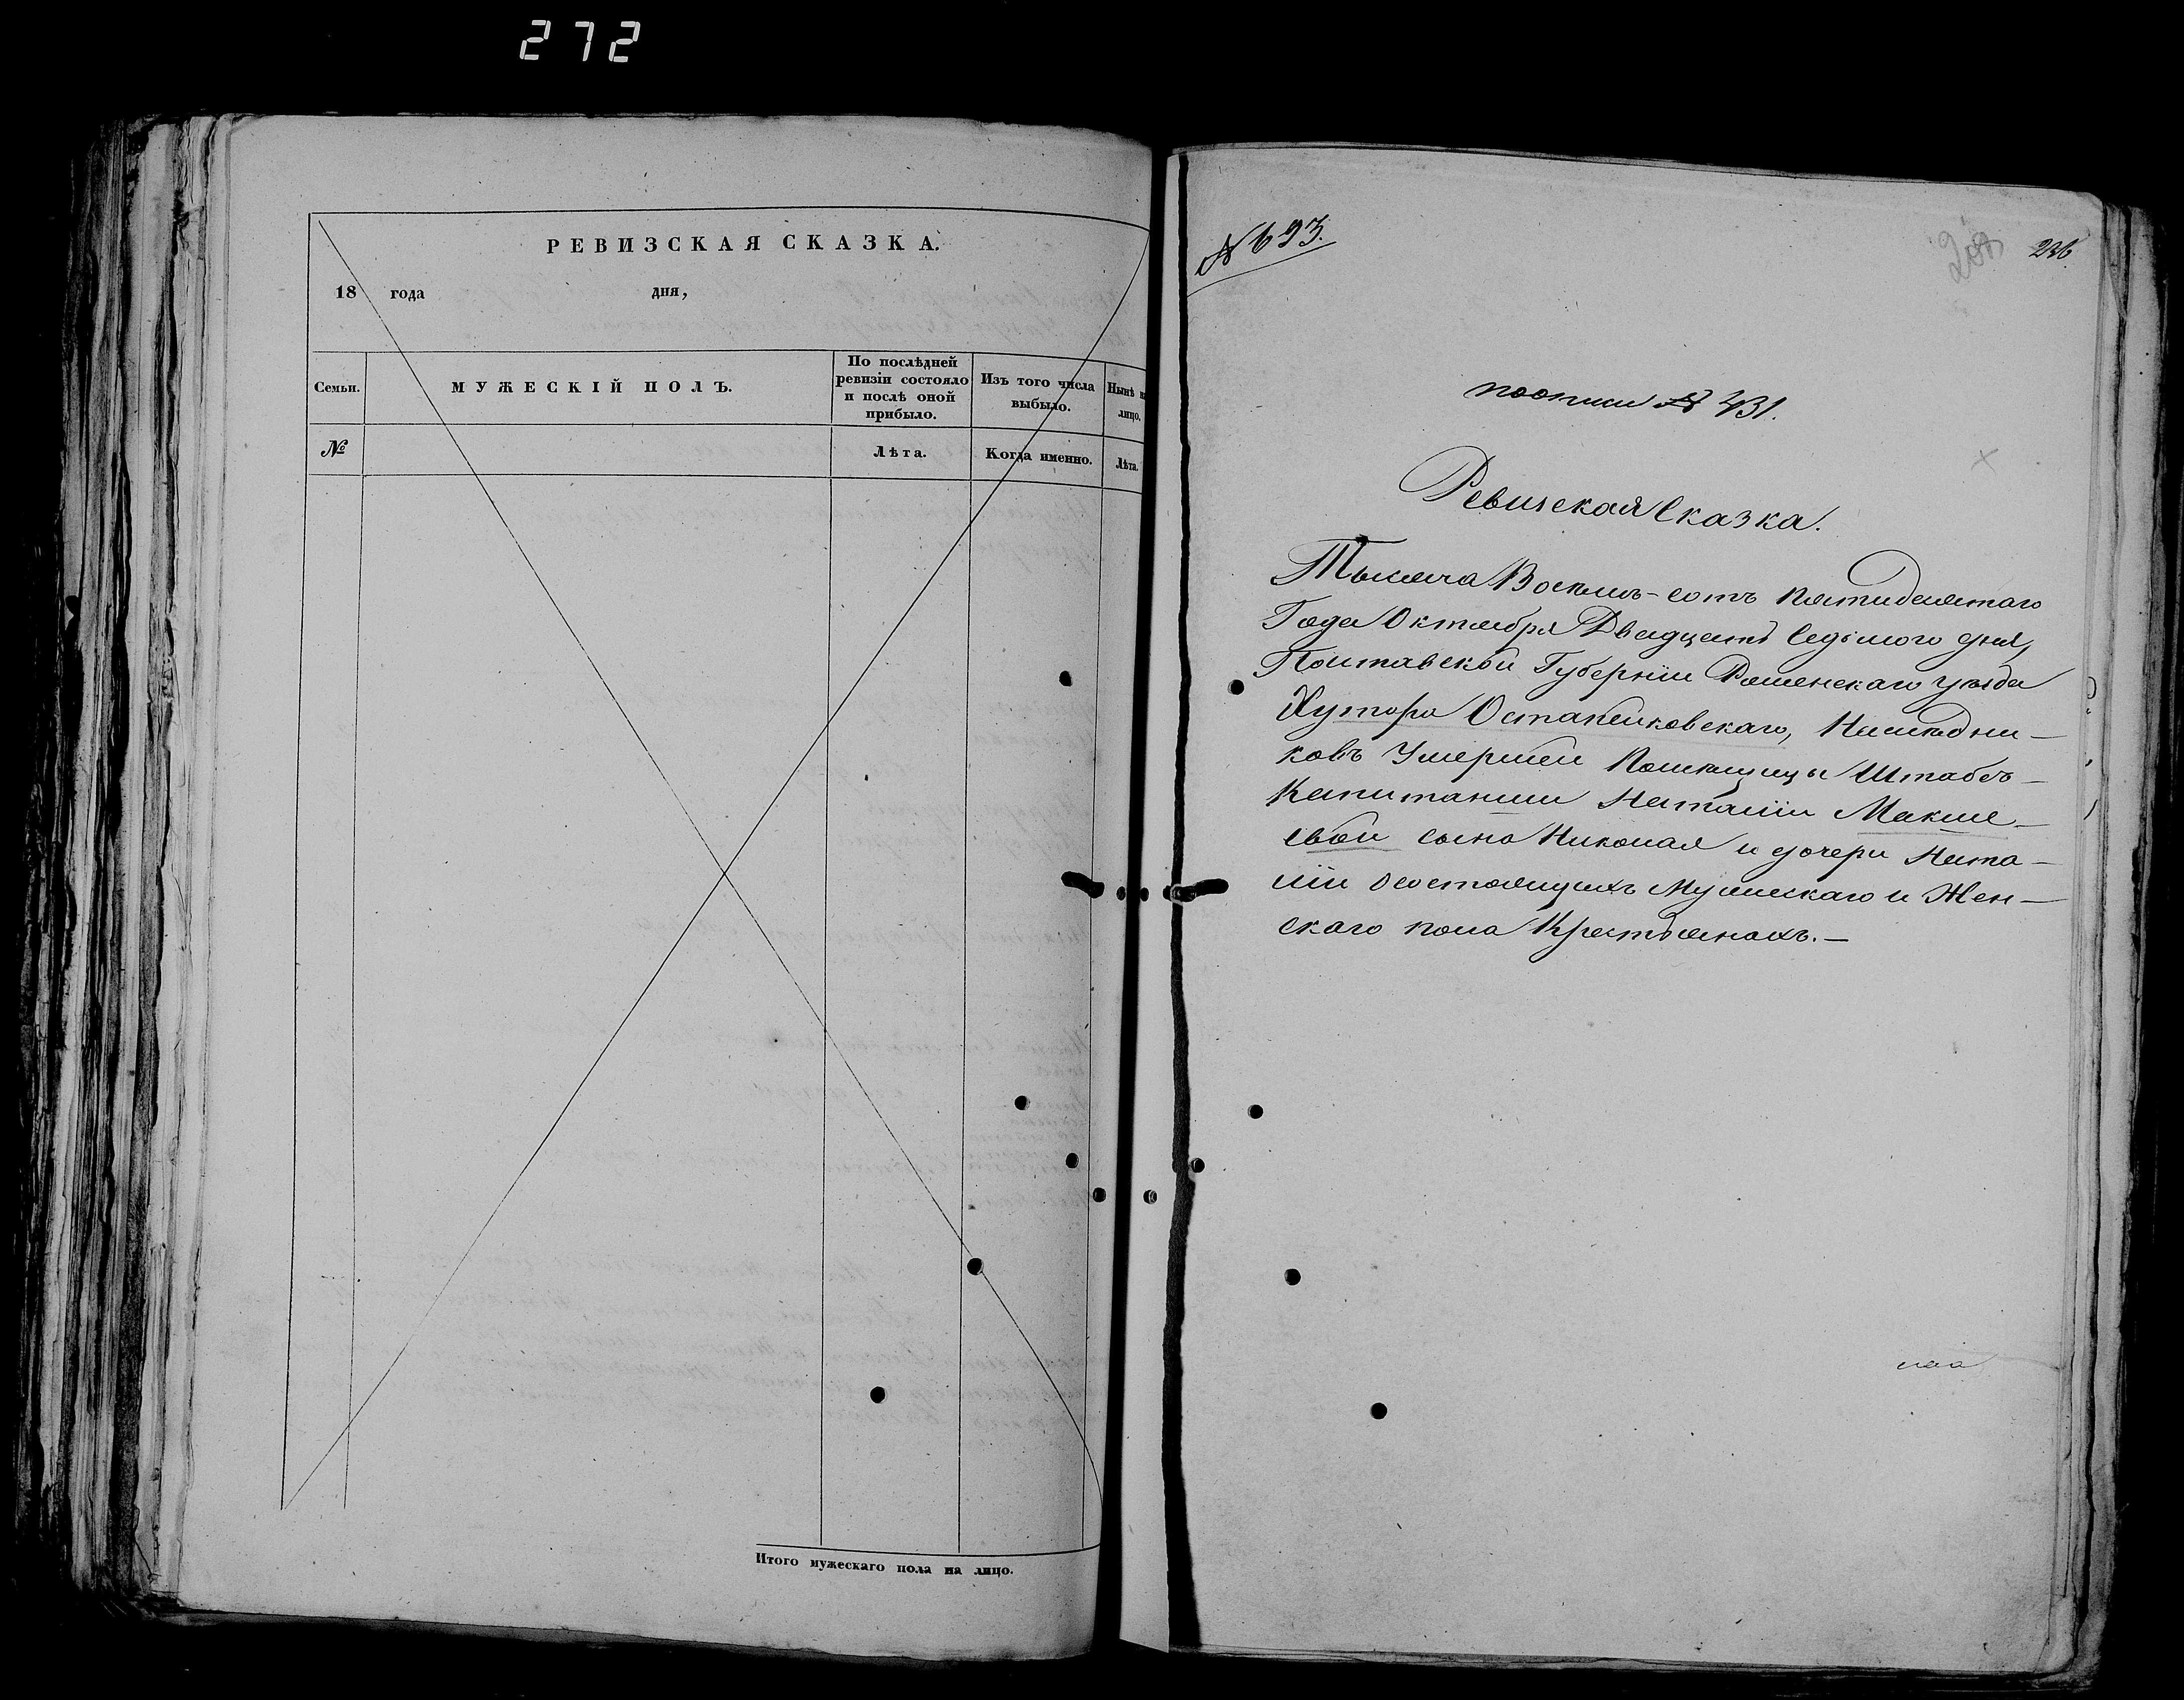 272
РЕВИЗСКАЯ СКАЗКА.
18 года дня,
Семьи.
МУЖЕСКІЙ ПОЛЪ.
По послѣдней
ревизіи состояло
и послѣ оной
прибыло.
Изъ того числа
выбыло.
Нынѣ на
лицо.
№
Лѣта.
Когда именно.
Лѣта.
Итого мужескаго пола на лицо.
№ 693.
236.
поописи № 431.
Ревизская Сказка.
Тысяча Восемь-сотъ пятидесятаго
Года Октября Двадцать Седьмого дня,
Полтавской Губерніи Роменскаго уѣзда
Хутора Остапейковскаго, Наслѣдни-
ковъ Умершей Помѣщицы Штабсъ-
Капитанши Наталіи Макше-
евой сына Николая и дочери Ната-
ліи о состоящихъ Мужескаго и Жен-
скаго пола Крестьянахъ.-